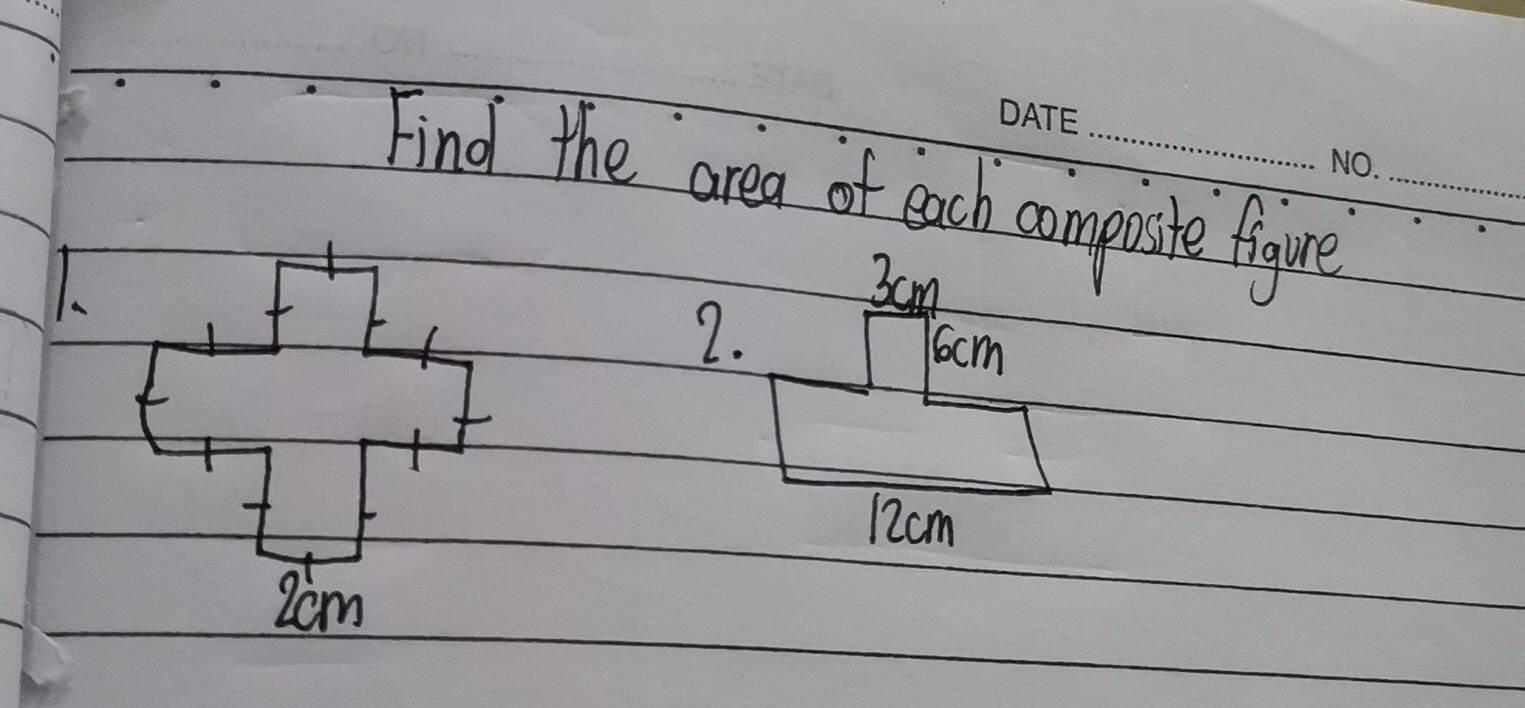 DATE .................... NO. ....................
Find the area of each composite figure
1.
2cm
2.
3cm
6cm
12cm